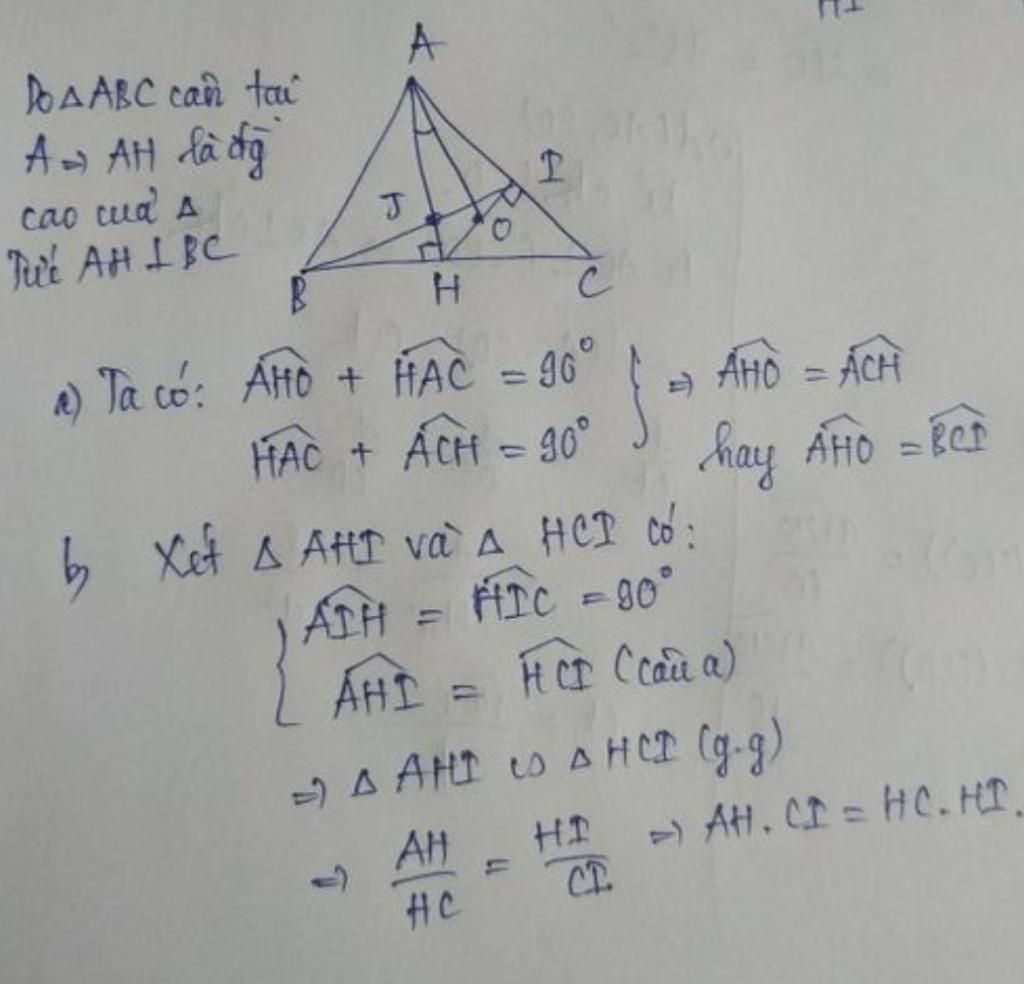 HI
Do △ABC cân tại
A => AH là đg
cao của △
Tức AH ⊥ BC
A
I
J
O
B
H
C
a) Ta có: \widehat{AHO} + \widehat{HAC} = 90° } => \widehat{AHO} = \widehat{ACH}
\widehat{HAC} + \widehat{ACH} = 90° hay \widehat{AHO} = \widehat{BCI}
b) Xét △ AHI và △ HCI có:
{ \widehat{AIH} = \widehat{HIC} = 90°
\widehat{AHI} = \widehat{HCI} (câu a)
=> △ AHI ∽ △ HCI (g.g)
=> AH/HC = HI/CI => AH . CI = HC . HI.